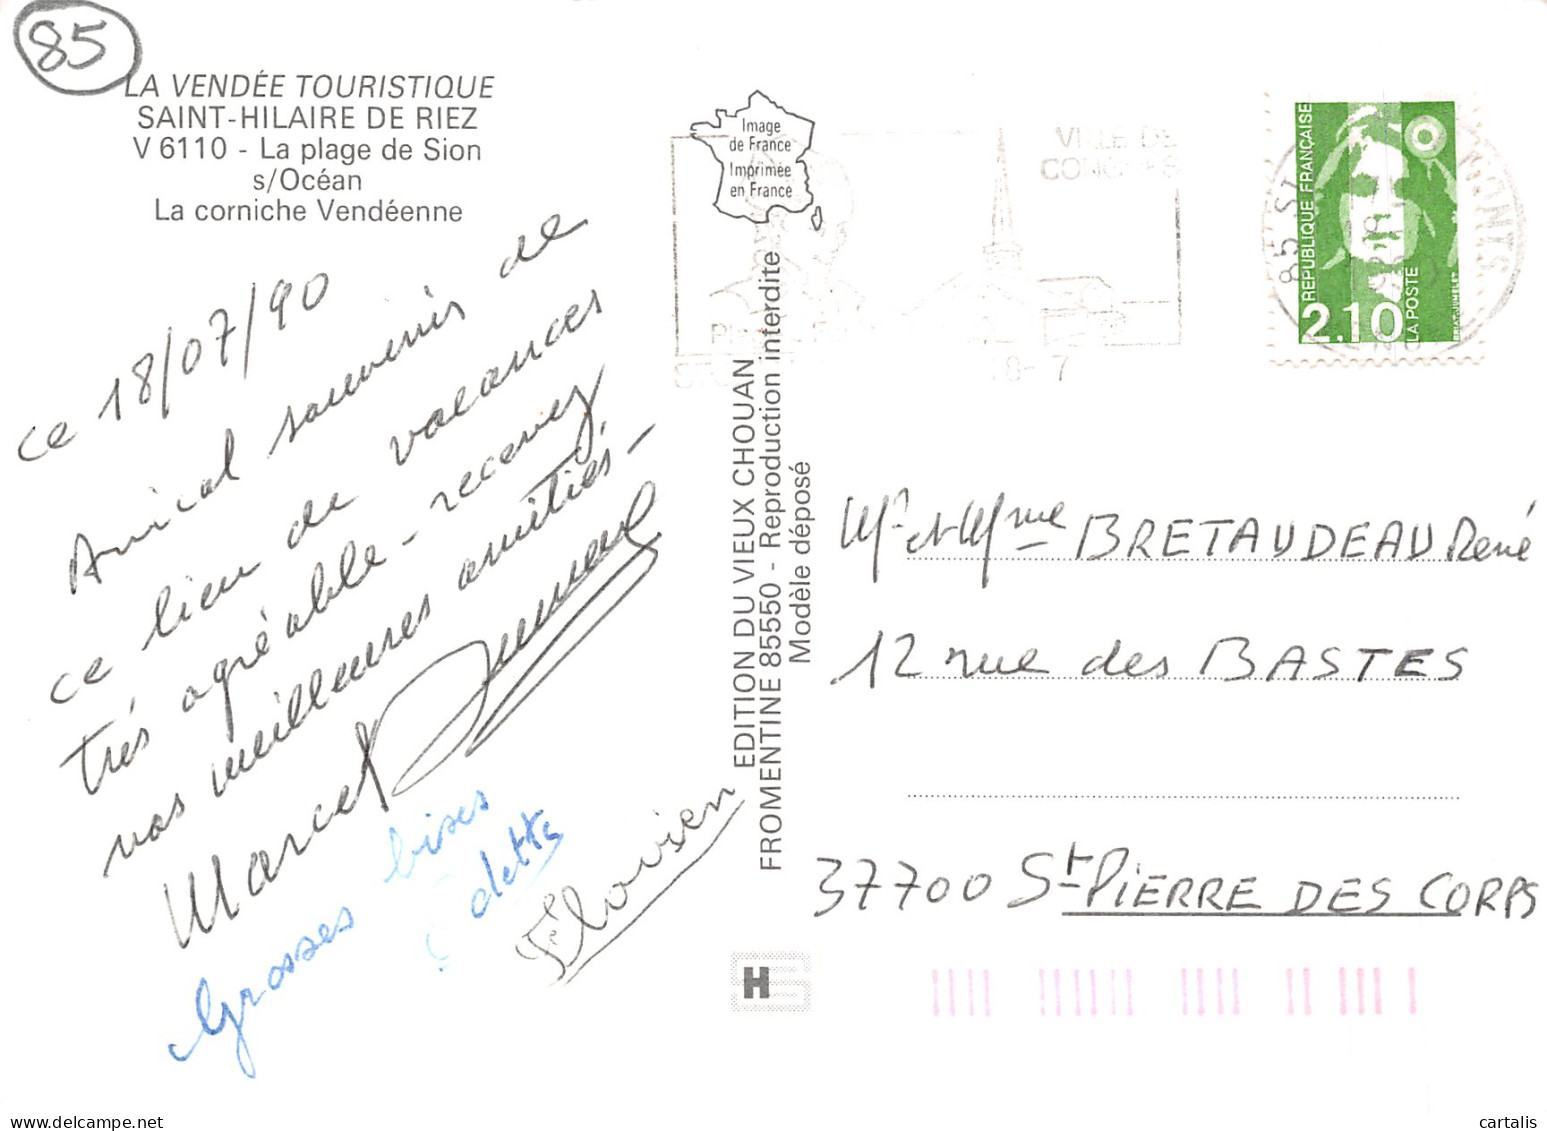 85
LA VENDÉE TOURISTIQUE
SAINT-HILAIRE DE RIEZ
V 6110 - La plage de Sion
s/Océan
La corniche Vendéenne
ce 18/07/90
Amical souvenir de
ce lieu de vacances
très agréable - recevez
nos meilleures amitiés -
Marcel
Grosses bises
Odette
Flovien
Image
de France
Imprimée
en France
EDITION DU VIEUX CHOUAN
FROMENTINE 85550 - Reproduction interdite
Modèle déposé
VILLE DE
85 ST
MONTS
8- 7
REPUBLIQUE FRANÇAISE
2,10
LA POSTE
Mr et Mme BRETAUDEAU René
12 rue des BASTES
37700 St-PIERRE DES CORPS
H
cartalis